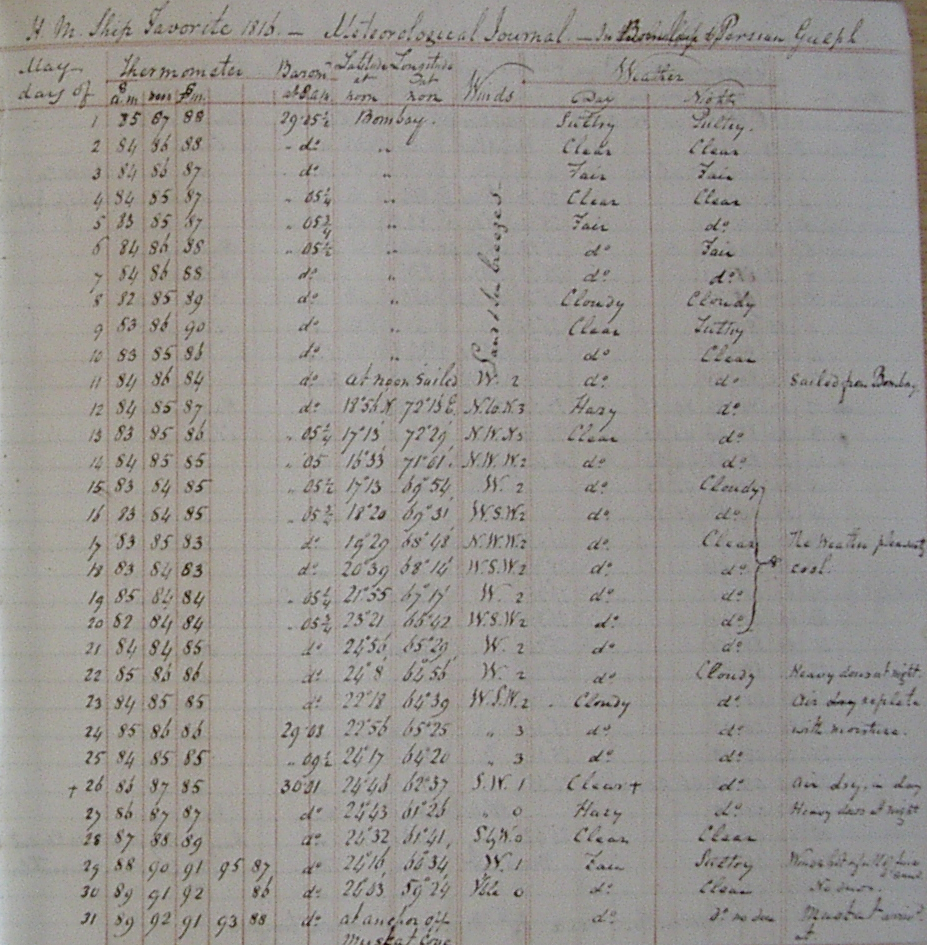 H. M. Ship Favorite 1816. — Meteorological Journal. — In Persian Gulph
May Thermometer Barom Latitude Longitude Winds Weather
days of 8 a.m. noon 8 p.m. at 8 a.m. at noon at noon Day Night
1 85 87 88 29.05½ Bombay. Sultry Sultry.
2 84 86 88 - do „ Clear Clear
3 84 86 87 - do „ Fair Fair
4 84 85 87 „ 05¼ „ Clear Clear
5 83 85 87 „ 05¾ „ Fair do
6 84 86 88 „ 05½ „ do Fair
7 84 86 88 do „ do do
8 82 85 89 do „ Cloudy Cloudy
9 83 86 90 do „ Clear Sultry
10 83 85 86 do „ do Clear
Land & Sea breezes
11 84 86 84 do at noon Sailed W. 2 do do Sailed from Bombay
12 84 85 87 do 18°56 N. 72°13 E. N.W.N.3 Hazy do
13 83 85 86 „ 05¼ 17°13 72°29 N.W.N3 Clear do
14 84 85 85 „ 05 16°33 N.W.W.2 do do
15 83 84 85 „ 05½ 17°13 69°54 W. 2 do Cloudy
16 83 84 85 „ 05½ 18°20 69°31 W.S.W2 do do
17 83 85 83 do 19°29 68°48 N.W.W2 do Clear The Weather pleasant &
18 83 84 83 do 20°39 68°14 W.S.W2 do do cool.
19 85 84 84 „ 05¼ 21°55 67°17 W. 2 do do
20 82 84 84 „ 05¾ 23°21 66°42 W.S.W2 do do
21 84 84 85 do 24°56 65°29 W. 2 do do
22 85 86 86 do 24°8 64°56 W. 2 do Cloudy Heavy dews at night.
23 84 85 85 do 22°18 64°39 W.S.W.2 Cloudy do Air day replete
24 85 86 86 29.08 22°56 65°25 „ 3 do do with moisture.
25 84 85 85 „ 09½ 24°17 64°20 „ 3 do do
+ 26 86 87 85 30.01 24°46 62°37 S.W. 1 Clear + do Air dry, in day
27 86 87 87 do 24°43 61°26 „ 0 Hazy do Heavy dews at night
28 87 88 89 do 24°32 61°41 S.b.W.0 Clear Clear
29 88 90 91 95 87 do 24°16 60°34 W. 1 Fair Sultry
30 89 91 92 86 do 59°24 Vble 0 do Clear No dews.
31 89 92 91 93 88 do at anchor off do do no dew Muskat
Muskat Cove at